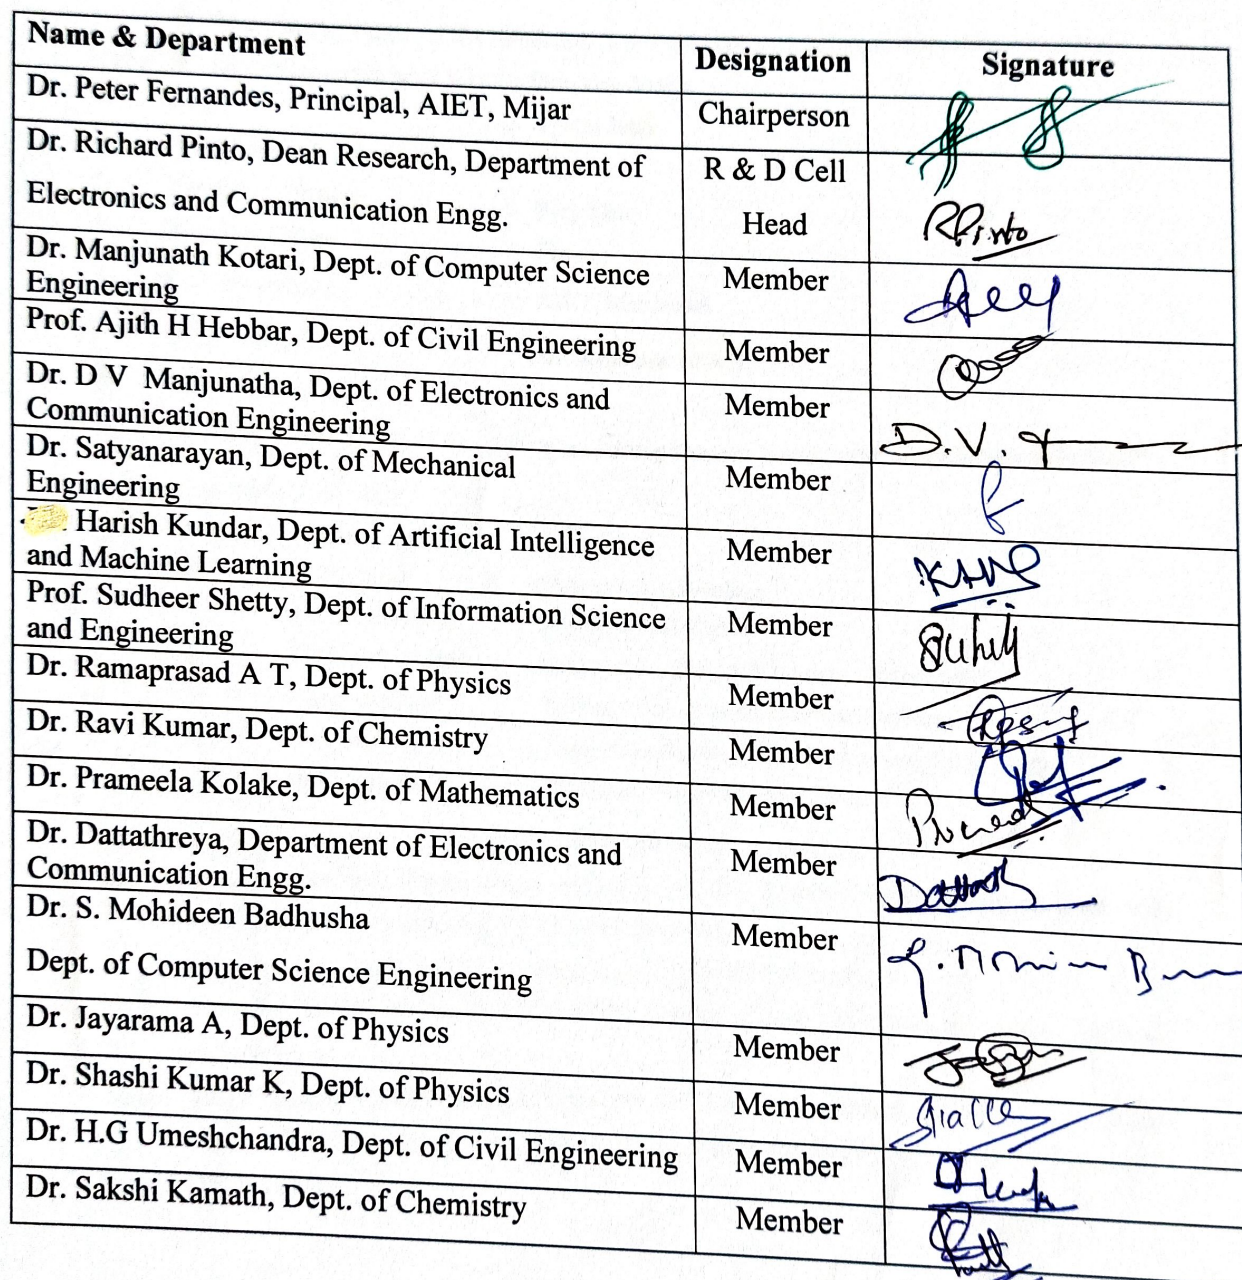 Name & Department Designation Signature
Dr. Peter Fernandes, Principal, AIET, Mijar Chairperson
Dr. Richard Pinto, Dean Research, Department of R & D Cell
Electronics and Communication Engg. Head RPinto
Dr. Manjunath Kotari, Dept. of Computer Science Member
Engineering
Prof. Ajith H Hebbar, Dept. of Civil Engineering Member
Dr. D V Manjunatha, Dept. of Electronics and Member
Communication Engineering D.V.
Dr. Satyanarayan, Dept. of Mechanical Member
Engineering
Harish Kundar, Dept. of Artificial Intelligence Member
and Machine Learning
Prof. Sudheer Shetty, Dept. of Information Science Member
and Engineering
Dr. Ramaprasad A T, Dept. of Physics Member
Dr. Ravi Kumar, Dept. of Chemistry Member
Dr. Prameela Kolake, Dept. of Mathematics Member
Dr. Dattathreya, Department of Electronics and Member
Communication Engg.
Dr. S. Mohideen Badhusha Member
Dept. of Computer Science Engineering
Dr. Jayarama A, Dept. of Physics Member
Dr. Shashi Kumar K, Dept. of Physics Member
Dr. H.G Umeshchandra, Dept. of Civil Engineering Member
Dr. Sakshi Kamath, Dept. of Chemistry Member